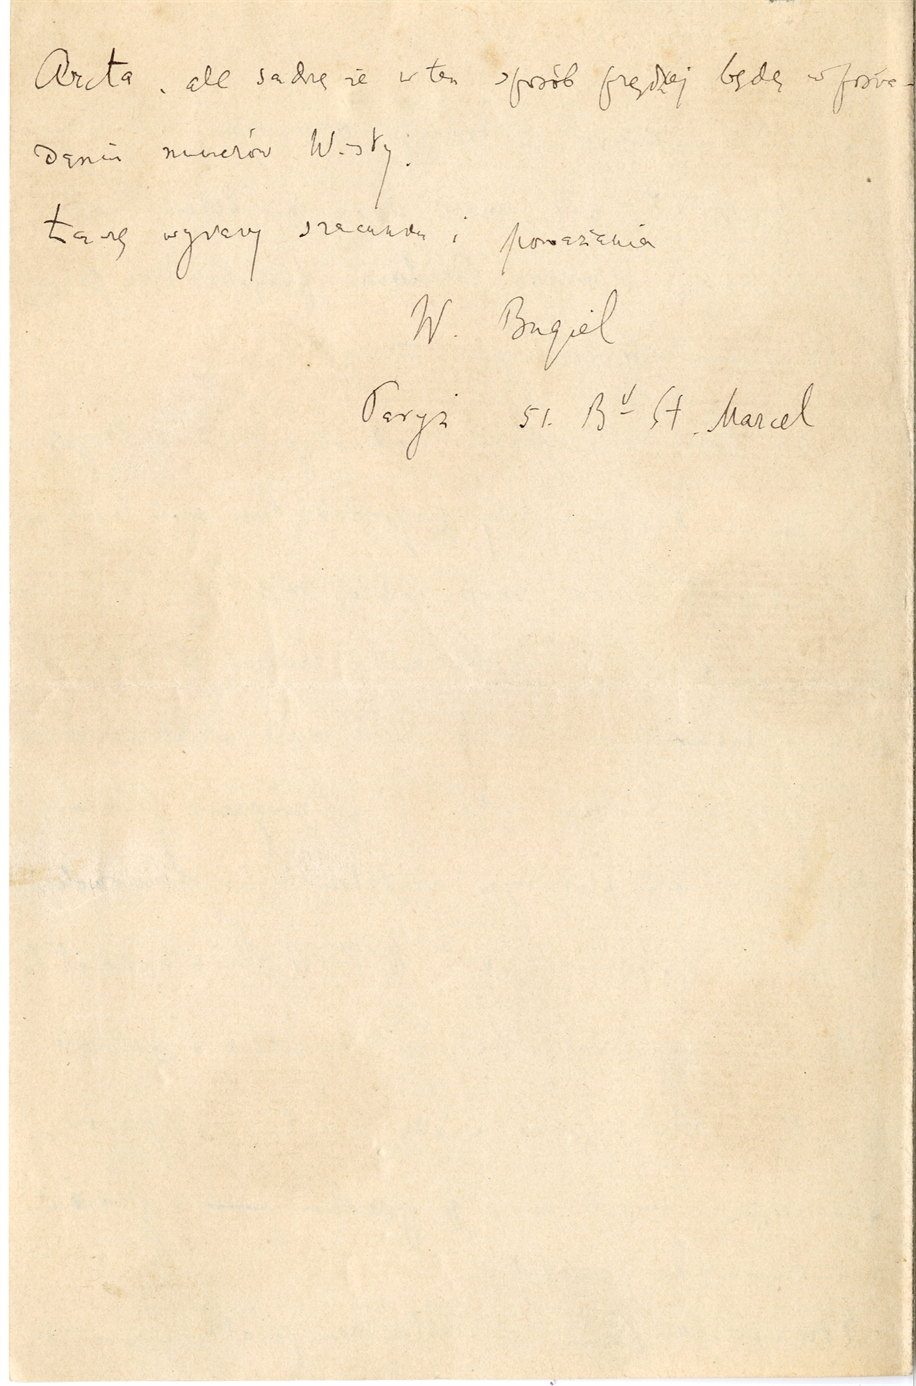 Arcta, ale sadzę że w ten sposób prędzej będę w posia-
daniu numerów Wisły.
Łączę wyrazy szacunku i poważania
W. Bugiel
Paryż 51. Bd St. Marcel